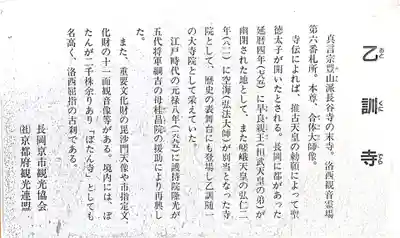 乙訓寺
おとくにでら
真言宗豊山派長谷寺の末寺。洛西観音霊場
第六番札所。本尊、合体大師像。
寺伝によれば、推古天皇の勅願によって聖
徳太子が開いたとされる。長岡に都があった
延暦四年(七八五)に早良親王(桓武天皇の弟)が
幽閉された地として、また嵯峨天皇の弘仁二
年(八一一)に空海(弘法大師)が別当となった寺
院として、歴史の表舞台にも登場し乙訓随一
の大寺院として栄えていた。
江戸時代の元禄八年(一六九五)に護持院隆光が
五代将軍綱吉の母桂昌院の援助により再興し
た。
また、重要文化財の毘沙門天像や市指定文
化財の十一面観音像等がある。境内には、ぼ
たんが二千株余りあり「ぼたん寺」としても
名高く、洛西屈指の古刹である。
長岡京市観光協会
㈳京都府観光連盟